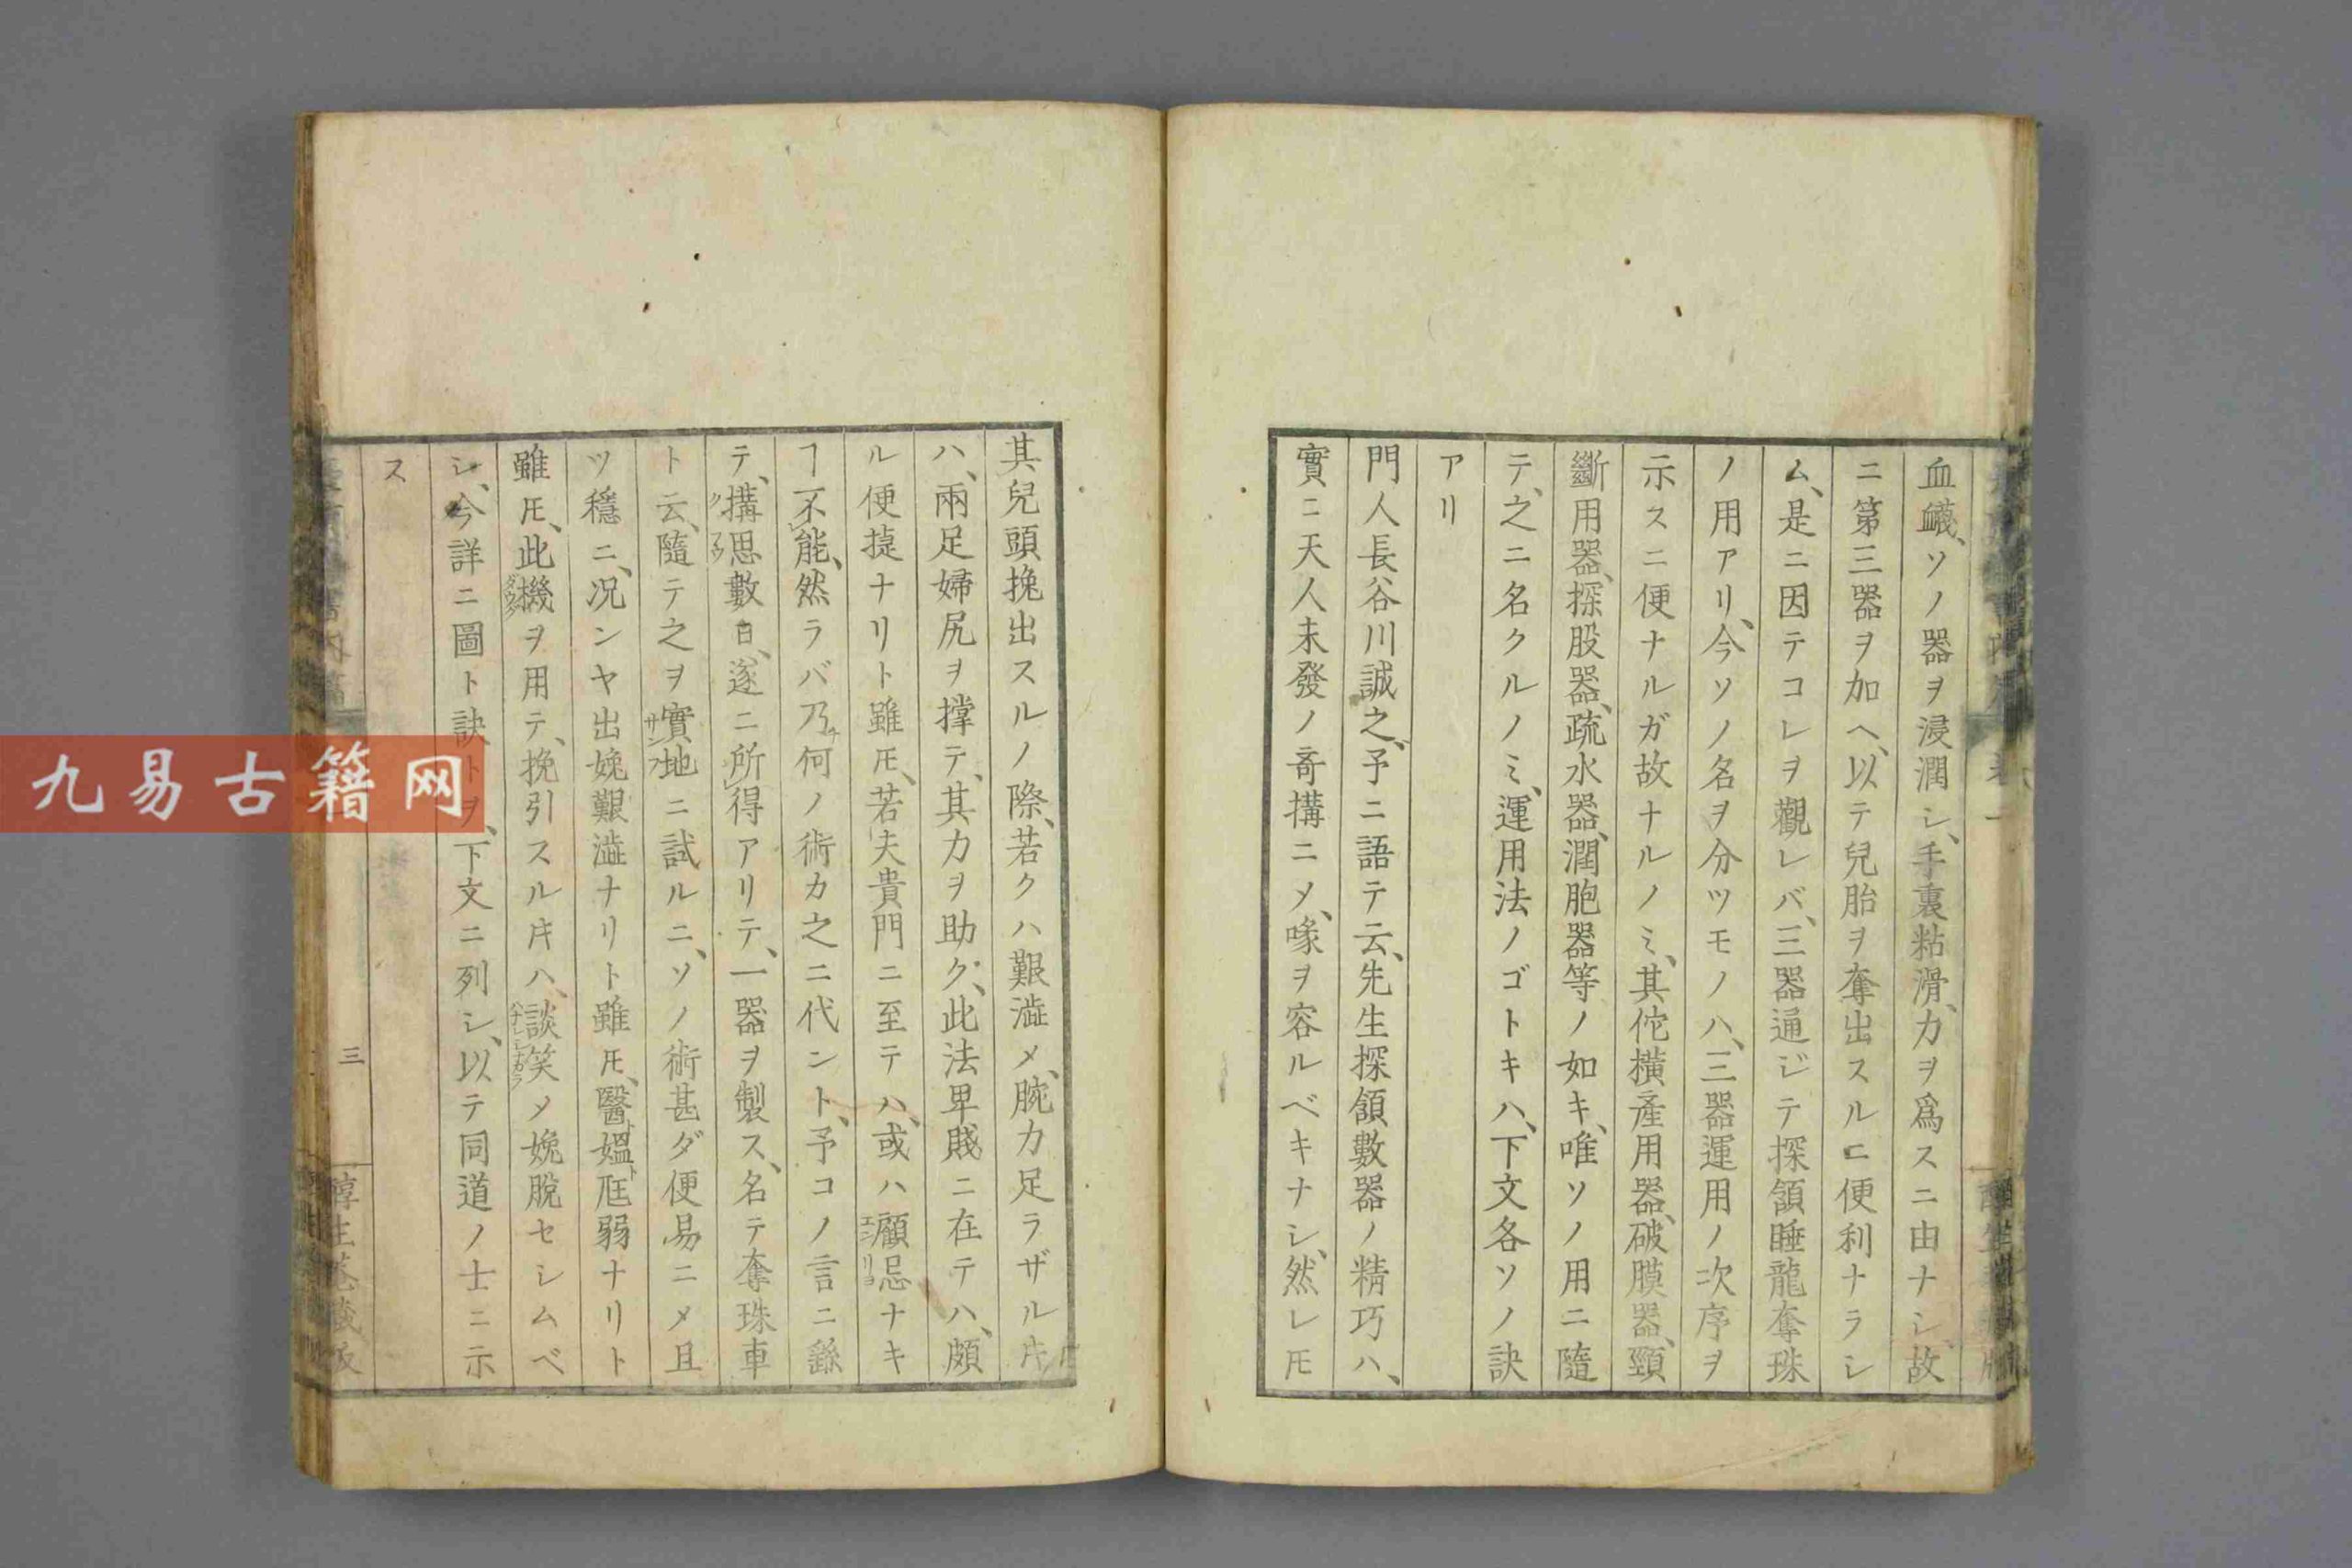 血衊、ソノ器ヲ浸潤シ、手裏粘滑、力ヲ爲スニ由ナシ、故
ニ第三器ヲ加ヘ、以テ兒胎ヲ奪出スルニ便利ナラシ
ム、是ニ因テコレヲ觀レバ、三器通ジテ探頷睡龍奪珠
ノ用アリ、今ソノ名ヲ分ツモノハ、三器運用ノ次序ヲ
示スニ便ナルガ故ナルノミ、其佗橫產用器、破膜器、頸
斷用器、探股器、疏水器、潤胞器等ノ如キ、唯ソノ用ニ隨
テ、之ニ名クルノミ、運用法ノゴトキハ、下文各ソノ訣
アリ
門人長谷川誠之、予ニ語テ云、先生探頷數器ノ精巧ハ、
實ニ天人未發ノ奇構ニメ、喙ヲ容ルベキナシ、然レ𪜈
其兒頭挽出スルノ際、若クハ艱澁メ、腕力足ラザル𪜈
ハ、兩足婦尻ヲ撑テ、其力ヲ助ク、此法卑賤ニ在テハ、頗
ル便捷ナリト雖𪜈、若夫貴門ニ至テハ、或ハ顧忌ナキ
ヿ不能、然ラバ乃何ノ術カ之ニ代ント、予コノ言ニ繇
テ、搆思數日、遂ニ所得アリテ、一器ヲ製ス、名テ奪珠車
ト云、隨テ之ヲ實地ニ試ルニ、ソノ術甚ダ便易ニメ且
ツ穩ニ、况ンヤ出娩艱澁ナリト雖𪜈、醫媼尫弱ナリト
雖𪜈、此機ヲ用テ、挽引スル𪜈ハ、談笑メ娩脫セシムベ
シ、今詳ニ圖ト訣トヲ、下文ニ列シ、以テ同道ノ士ニ示
ス
三
九易古籍网